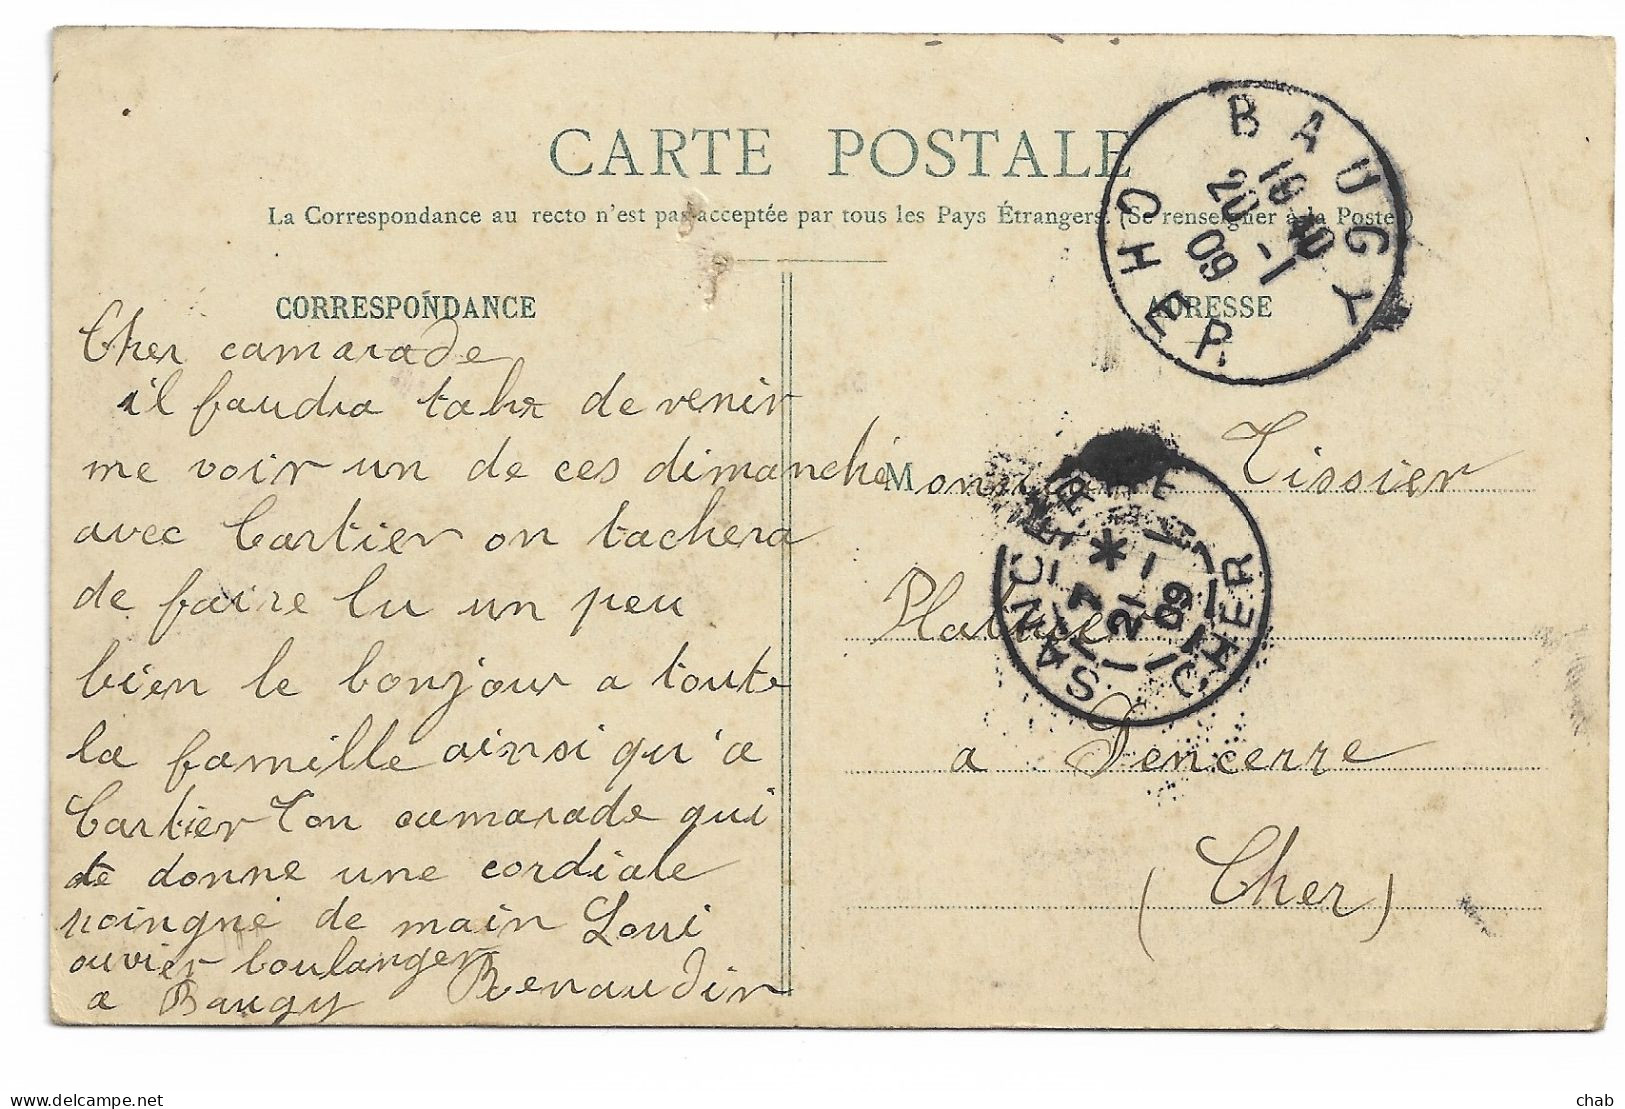 CARTE POSTALE
La Correspondance au recto n'est pas acceptée par tous les Pays Étrangers. (Se renseigner à la Poste.)
CORRESPONDANCE
Cher camarade
il faudra de venir
me voir un de ces dimanche
avec Cartier on tachera
de faire lu un peu
bien le bonjour a toute
la famille ainsi qu'a
Cartier Ton camarade qui
te donne une cordiale
poingné de main Loui
ouvier boulanger Renaudin
a Baugy
ADRESSE
Monsieur Tissier
a Sencerre
(Cher)
BAUGY
CHER
19 40
20 -1
09
SANCERRE
CHER
*
7
21 -1
09
delcampe.net
chab